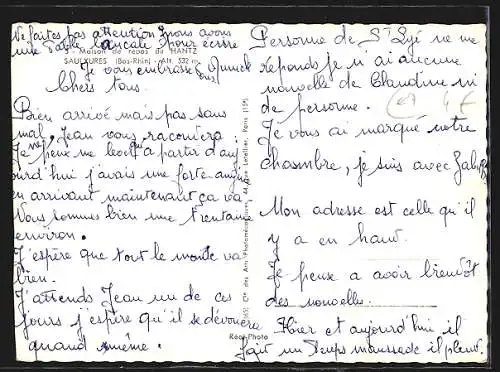 Ne faites pas attention nous avons
une table bancale pour écrire
Maison de repos du HANTZ
SAULXURES (Bas-Rhin) - Alt. 532 m.
Je vous embrasse
tous.
Chers tous.
Bien arrivé mais pas sans
mal, Jean vous racontera.
Je ne peux me lever qu'a partir d'auj
ourd'hui j'avais une forte angine
en arrivant maintenant ça va
Nous sommes bien une trentaine
environ.
J'espère que tout le monde va
bien.
J'attends Jean un de ces
jours j'espère qu'il se dévouera
quand même.
Réal-Photo
Personne de St Dyé ne me
réponds je n'ai aucune
nouvelle de Claudine ni
de personne.
Je vous ai marqué notre
chasmbre, je suis avec
Mon adresse est celle qu'il
y a en haut.
Je pense a avoir bientôt
des nouvelles.
Hier et aujourd'hui il
fait un temps maussade il pleut.